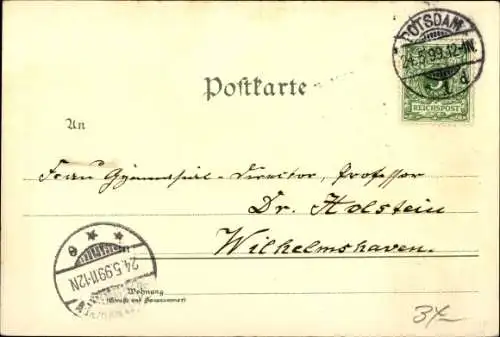 POTSDAM
24.5.99.12-1N.
1. d
5
REICHSPOST
Postkarte
An
Frau Gymnasial-Director, Professor
Dr. Holstein
Wilhelmshaven.
24.5.99.11-12N
Wohnung
(Straße und Hausnummer)
34-